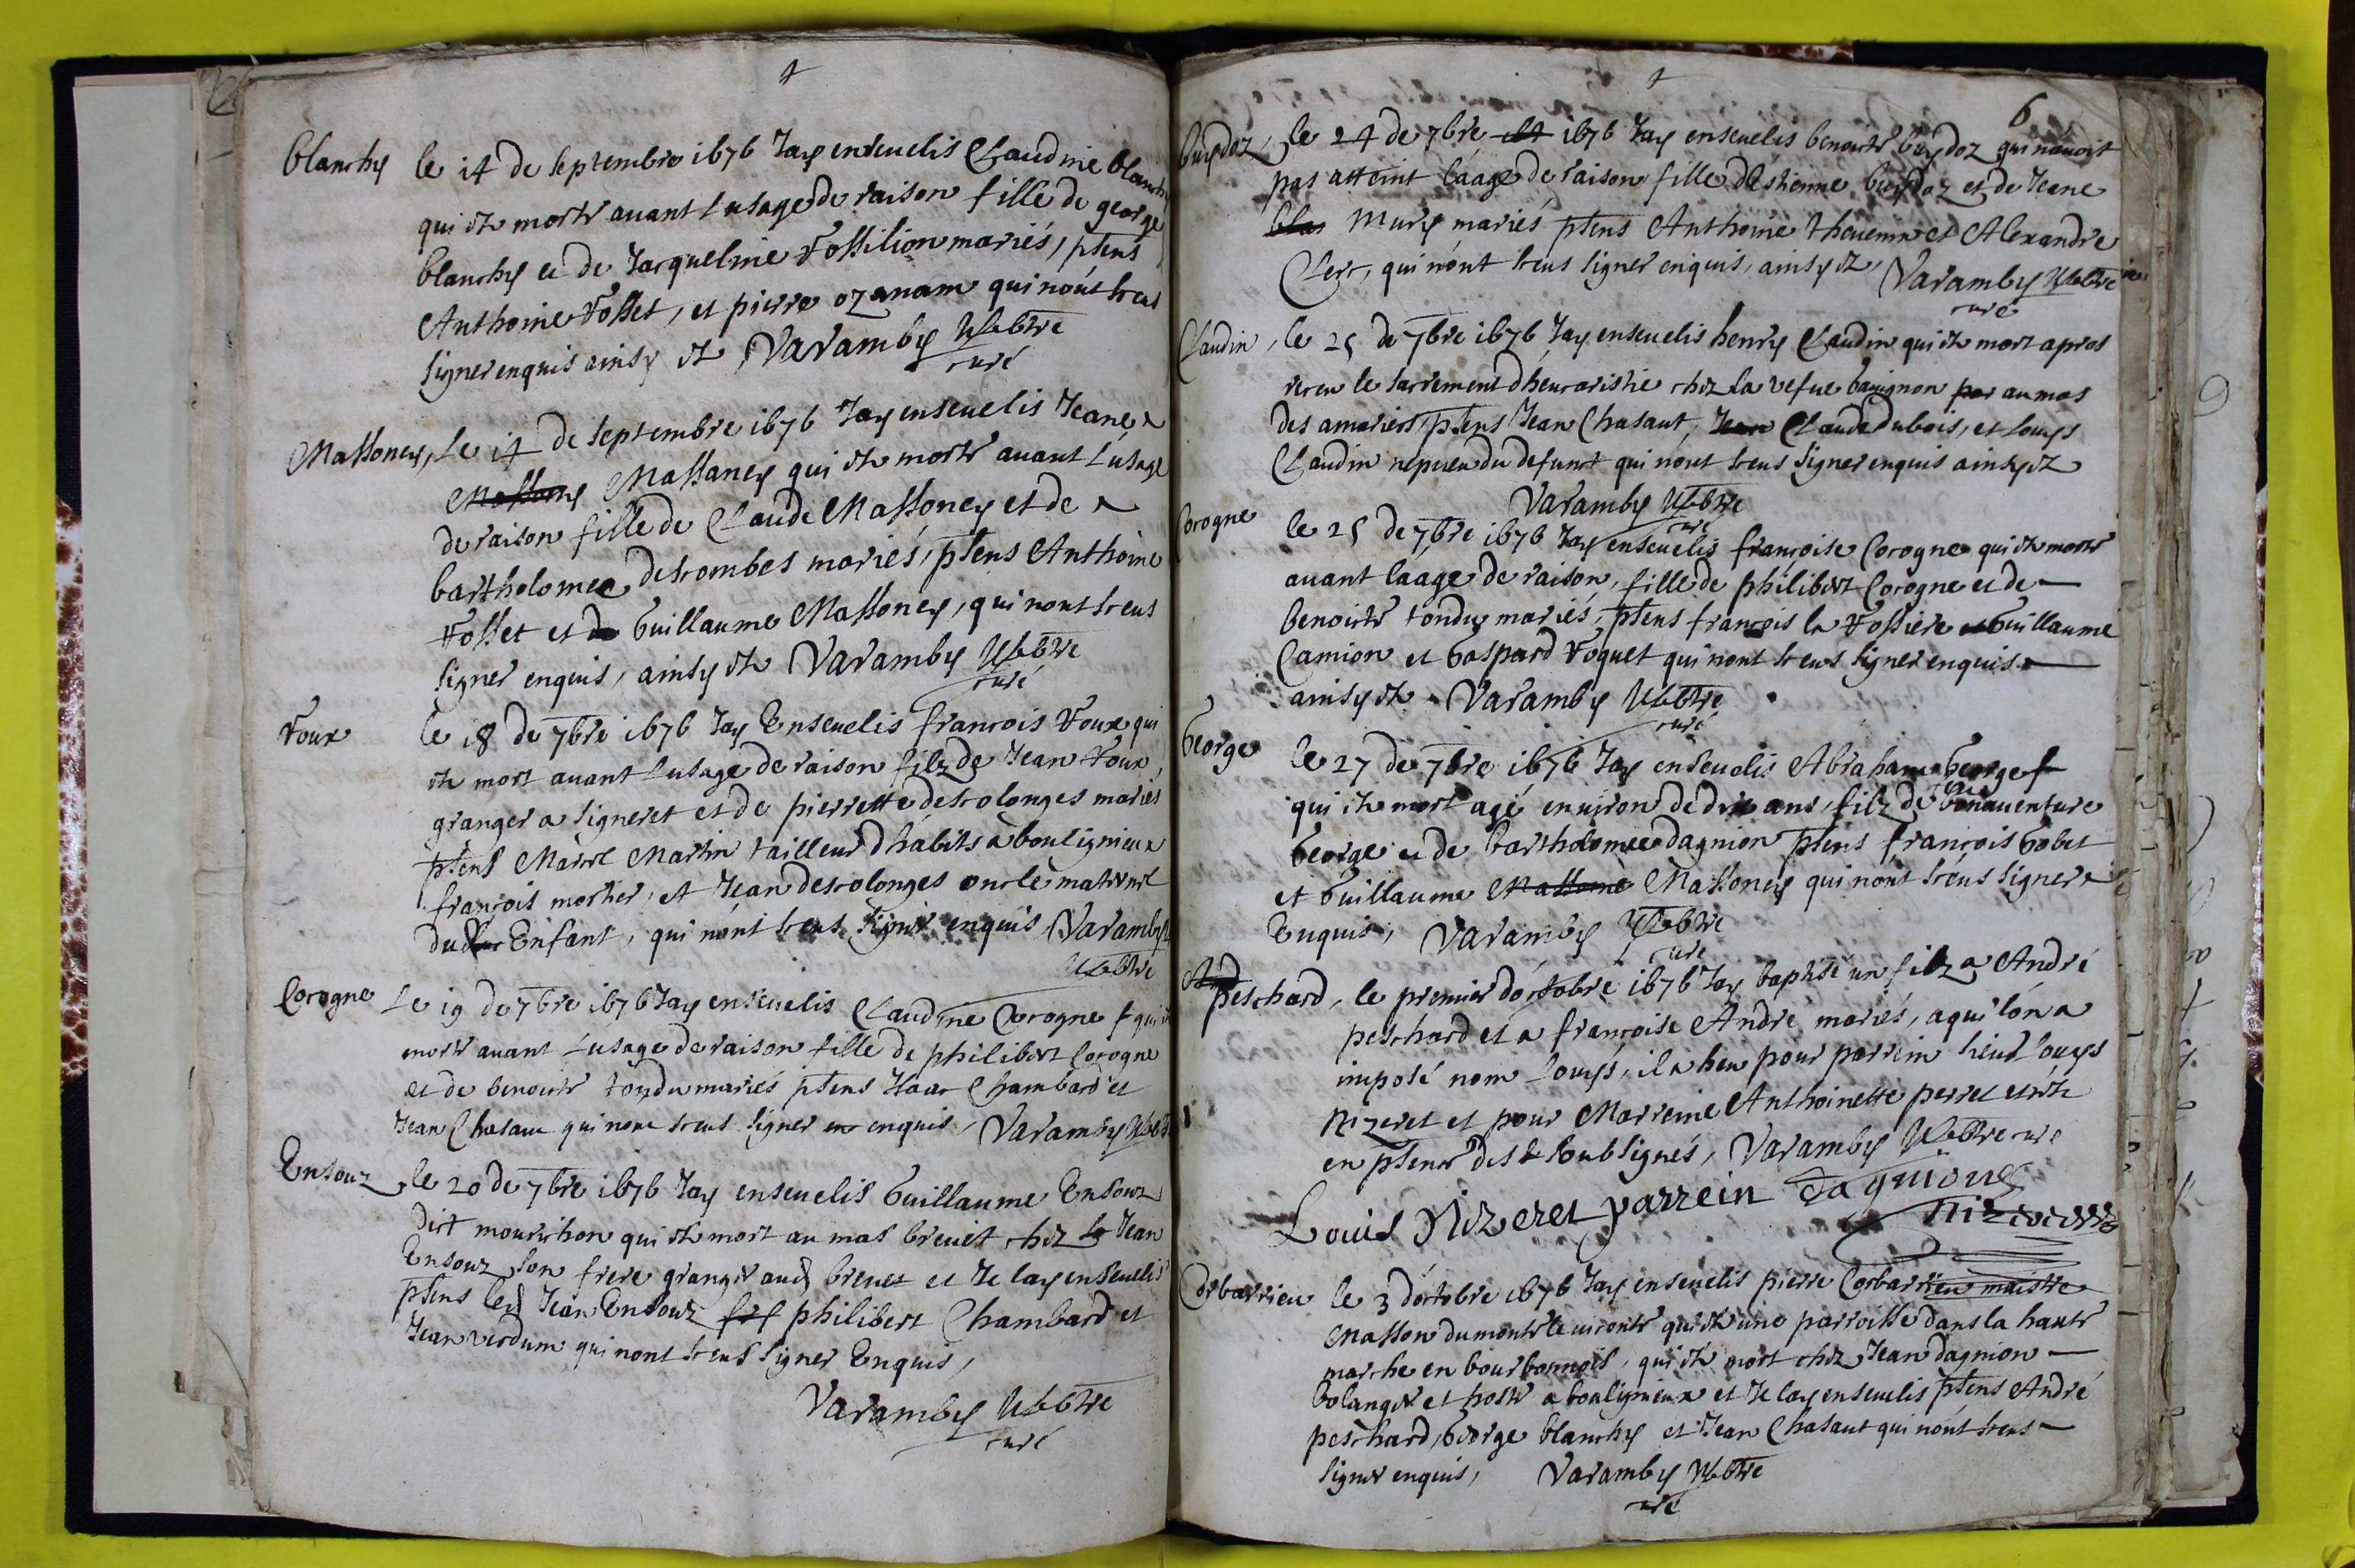 Blanchy le 14 de septembre 1676 Jay ensevelis Claudine blanchy
qui est morte avant lusage de raison fille de george
blanchy et de Jacqueline Fossilion mariés, pñts
Anthoine Fosset, et pierre ozanam qui nont sceus
signer enquis ainsy est Varamby pbtre
curé
Massoney, Le 14 de septembre 1676 Jay ensevelis Jeane
Massoney qui est morte avant Lusage
de raison fille de Claude Massoney et de
bartholomee descombes mariés, pñts Anthoine
Fosset et Guillaume Massoney, qui nont sceus
signer enquis, ainsy est Varamby pbtre
curé
Foux le 18 de 7bre 1676 Jay Ensevelis françois Foux qui
est mort avant lusage de raison filz de Jean Foux
granger a signeret et de pierrette descolonges mariés
pñts Marcel Martin tailleur dhabits a bouligneux
françois mortier, et Jean descolonges oncle maternel
dud Enfant, qui nont sceus signer enquis Varamby
pbtre
Corogne Le 19 de 7bre 1676 Jay ensevelis Claudine Corogne qui est
morte avant Lusage de raison fille de philibert Corogne
et de benoiste tondu mariés pñts Isaac Chambard et
Jean Chasaut qui nont sceus signer enquis, Varamby pbtre
Ensouz, le 20 de 7bre 1676 Jay ensevelis Guillaume Ensouz
dict mourichon qui est mort au mas brevet chez Jean
Ensouz son frere granger aud brevet et Je lay ensevelis
pñts led Jean Ensouz philibert Chambard et
Jean verdum qui nont sceus signer Enquis,
Varamby pbtre
curé
6
Buydoz, le 24 de 7bre 1676 Jay ensevelis benoiste buydoz qui navoit
pas atteint láage de raison fille destienne buydoz et de Jeane
Mury mariés pñts Anthoine thevenin et Alexandre
Clerc, qui nont sceus signer enquis, ainsy est, Varamby pbtre
curé
Claudin, le 25 de 7bre 1676 Jay ensevelis henry Claudin qui est mort apres
receu le sacrement dheucaristie chez la vefue bavignon au mas
des amoriers, pñts Jean Chasaut, Claude dubois, et Louys
Claudin nepveu du defunct qui nont sceus signer enquis ainsy est
Varamby pbtre
curé
Corogne le 25 de 7bre 1676 Jay ensevelis françoise Corogne qui est morte
avant laage de raison, fille de philibert Corogne et de
benoiste tondu mariés, pñts françois la Fossiere Guillaume
Camion et Gaspard Foquet qui nont sceus signer enquis
ainsy est Varamby pbtre
curé
George le 27 de 7bre 1676 Jay ensevelis Abraham George
qui est mort agé environ de dix ans, filz de bonaventure
George et de bartholomee dagnion pñts françois Gobet
et Guillaume Massoney qui nont sceus signer
Enquis, Varamby pbtre
curé
peschard, le premier doctobre 1676 Jay baptisé un filz a André
peschard et a françoise André mariés, a qui lón a
imposé nom Louys, il a heu pour parrein sieur Louys
Nizeret et pour Marreine Anthoinette perret
en pñtce des soubsignés, Varamby pbtre curé
Louis Nizeret parrein dagnions
Corbarrieu le 3 doctobre 1676 Jay ensevelis pierre Corbarrieu maistre
Masson du monts le viconte qui est une parroisse dans la haute
marche en bourbonnois, qui est mort chez Jean dagnion
bolanger et hoste a bouligneux et Je lay ensevelis pñts André
peschard, George blanchy et Jean Chasaut qui nont sceus
signer enquis, Varamby pbtre
curé